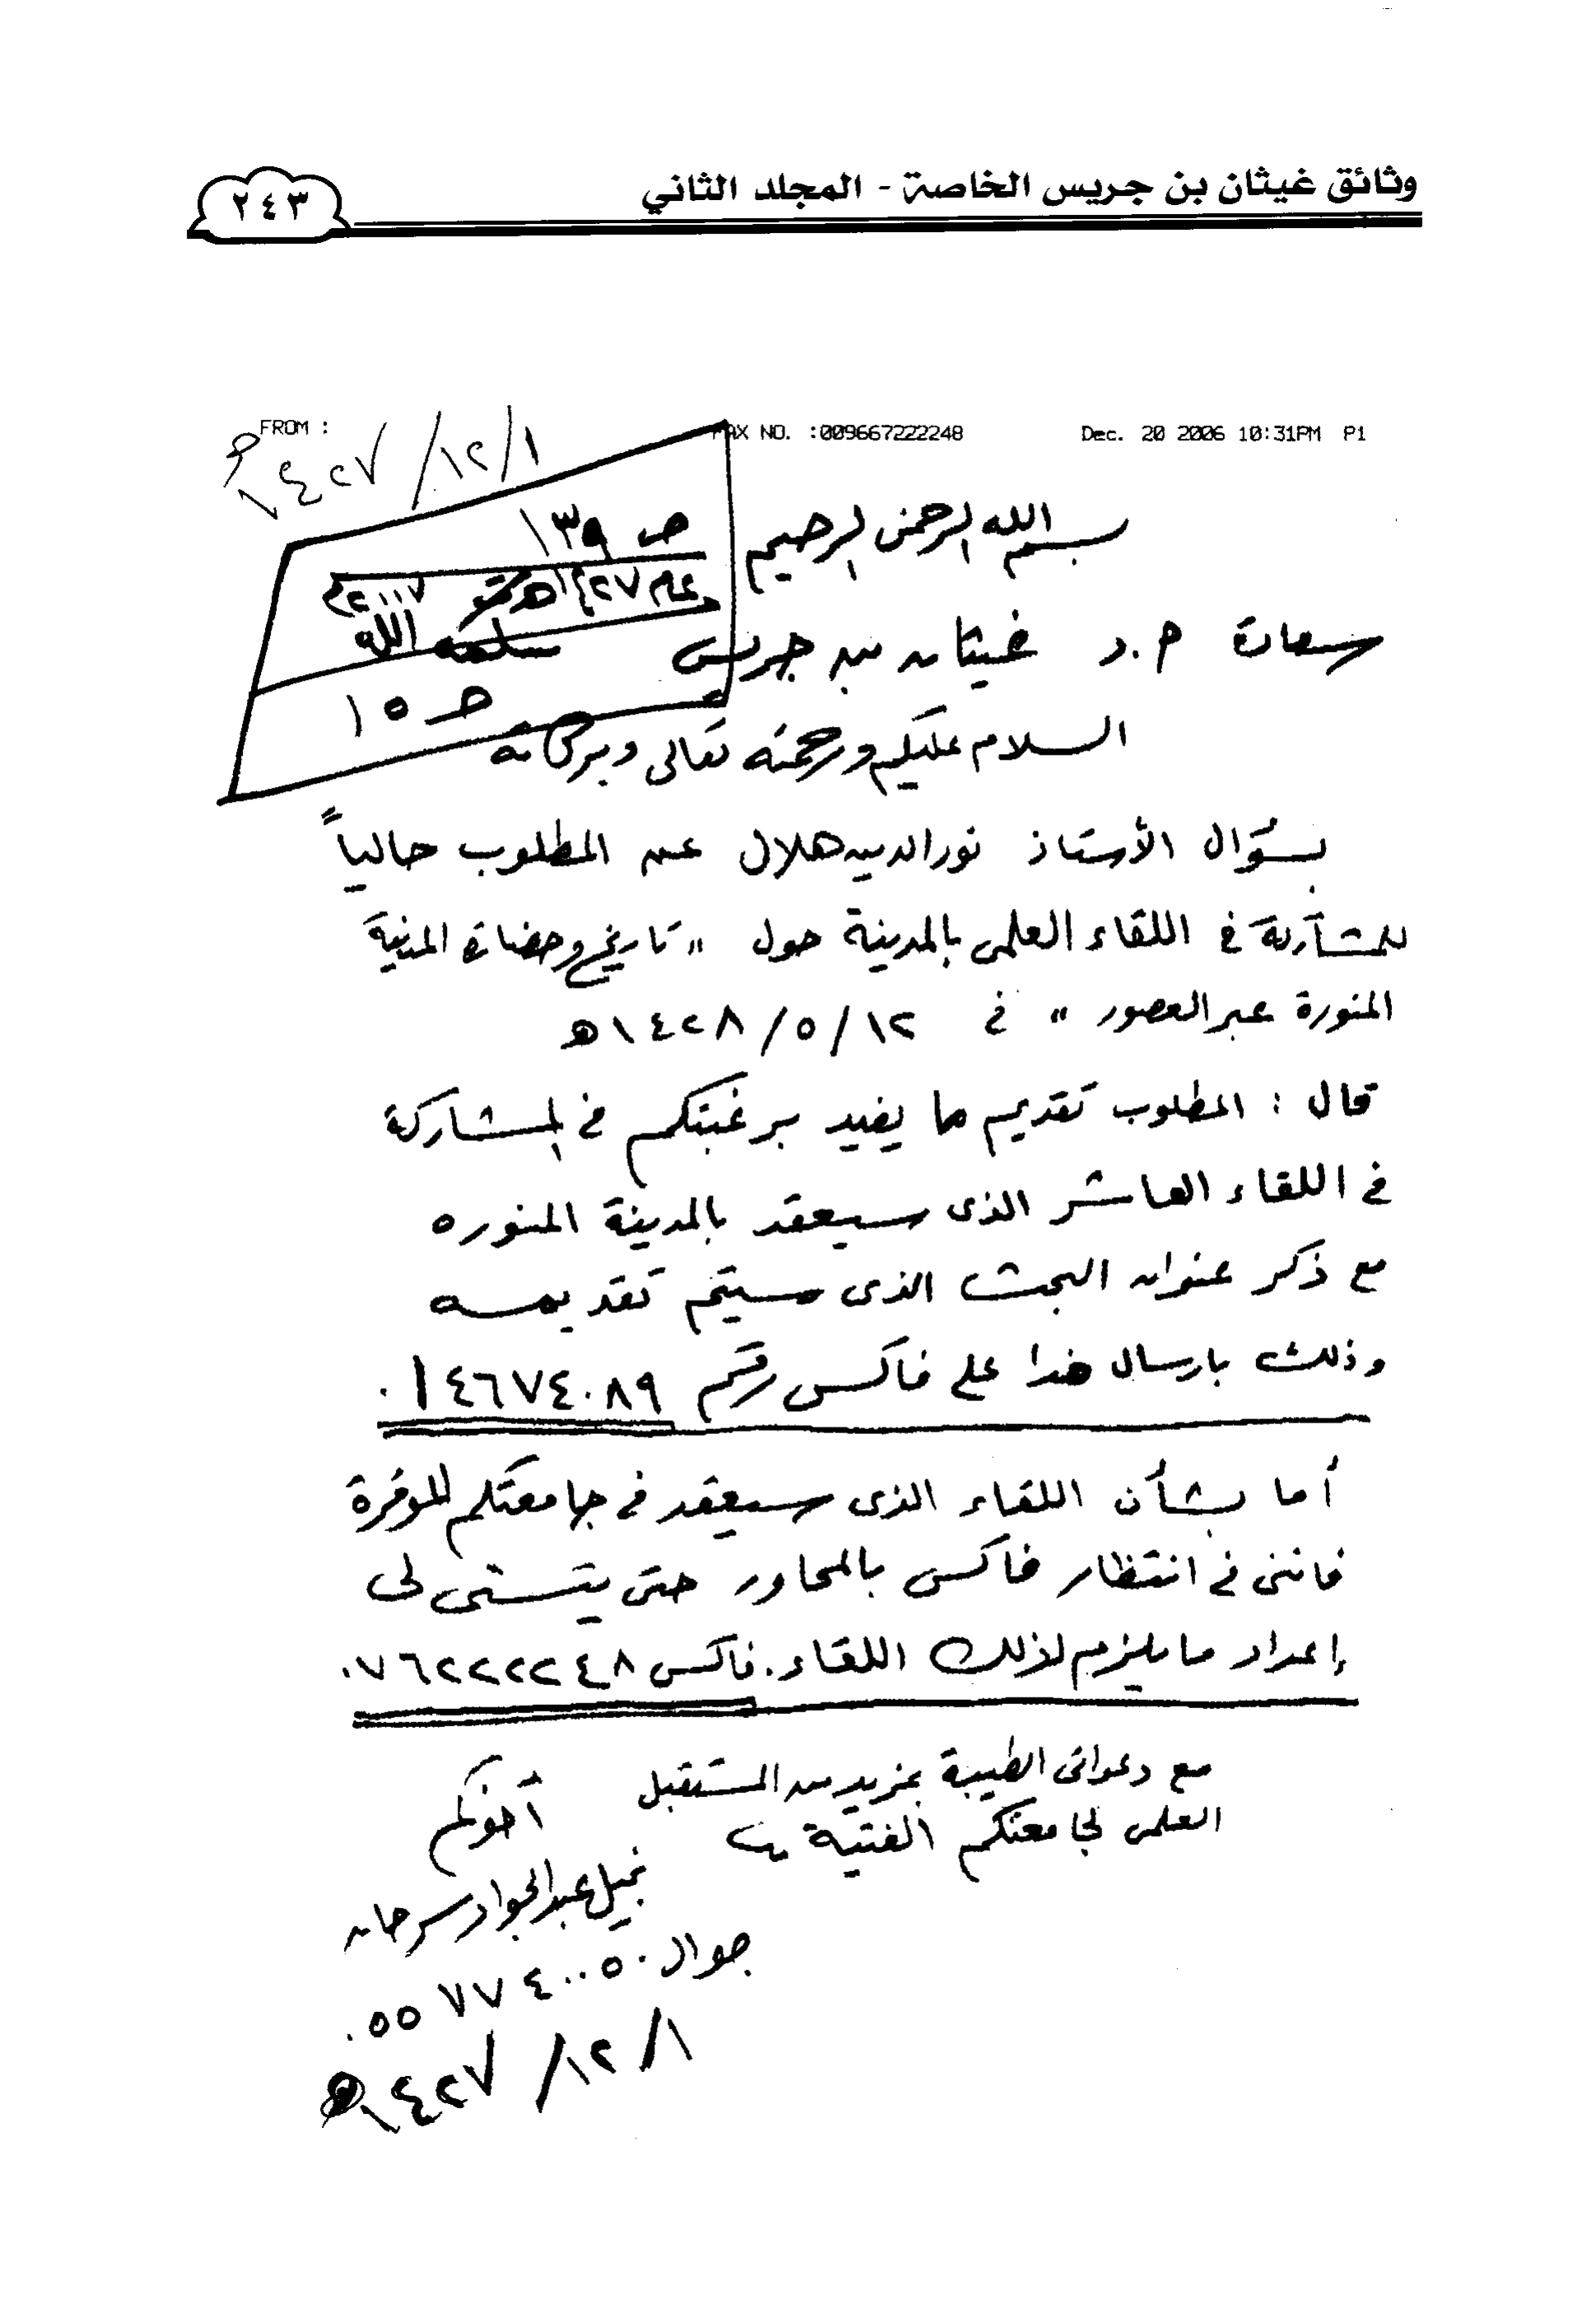 وثائق غيثان بن جريس الخاصة - المجلد الثاني
٢٤٣
FROM :
FAX NO. :009667222248
Dec. 20 2006 10:31PM P1
١٤٢٧/١٢/١
ص ١٣٩
سلمه الله
ص ١٥
بسم الله الرحمن الرحيم
سعادة أ.د غيثان بن جريس
السلام عليكم ورحمته تعالى وبركاته
بسؤال الأستاذ نور الدين هلال عن المطلوب حالياً
للمشاركة في اللقاء العلمى بالمدينة حول " تاريخ وحضارة المدنية
المنورة عبر العصور " في ١٢/٥/١٤٢٨هـ
قال : المطلوب تقديم ما يفيد برغبتكم في المشاركة
في اللقاء العاشر الذى سيعقد بالمدينة المنوره
مع ذكر عنوان البحث الذى سيتم تقديمه
وذلك بارسال هذا على فاكس رقم ٠١٤٦٧٤٠٨٩
أما بشأن اللقاء الذى سيعقد في جامعتكم الموقرة
فاننى في انتظار فاكس بالمحاور حتى يتسنى لى
إعداد ما يلزم لذلك اللقاء. فاكس ٠٧٦٢٢٢٢٤٨
مع دعواتى الطيبة بمزيد من المستقبل
العلمى لجامعتكم الفتية
أخوكم
جميل عبد الجواد سرحان
جوال ٠٥٥٧٧٤٠٠٥٠
١٤٢٧/١٢/١هـ